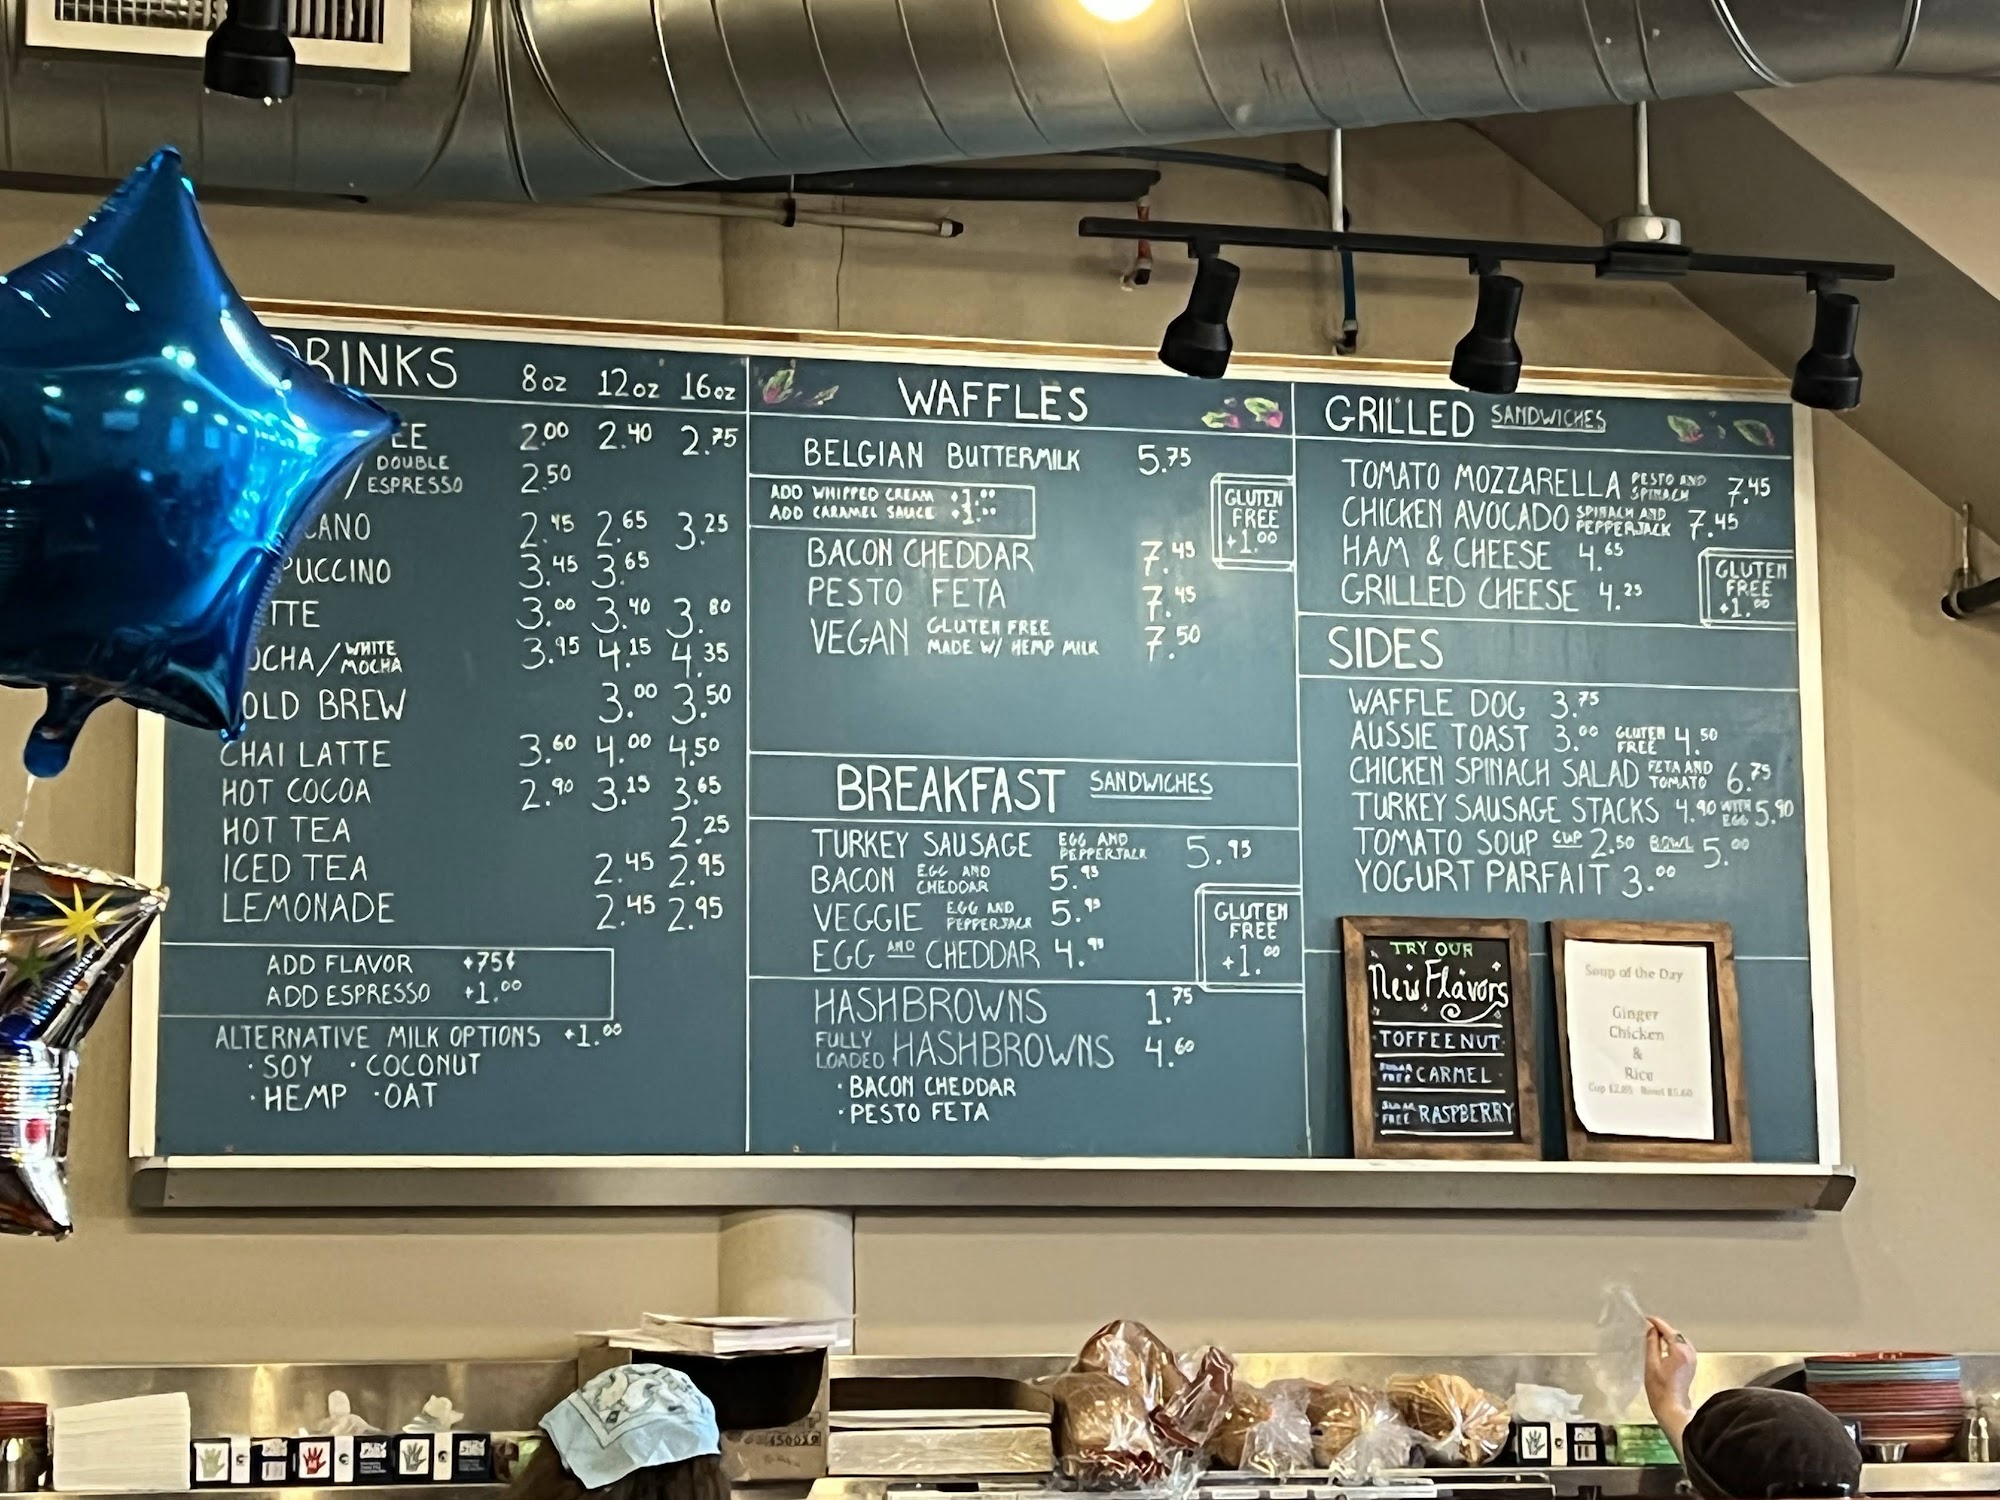 DRINKS 8oz 12oz 16oz
EE 2.00 2.40 2.75
/ DOUBLE ESPRESSO 2.50
CANO 2.45 2.65 3.25
PUCCINO 3.45 3.65
TTE 3.00 3.40 3.80
OCHA/WHITE MOCHA 3.95 4.15 4.35
OLD BREW 3.00 3.50
CHAI LATTE 3.60 4.00 4.50
HOT COCOA 2.90 3.15 3.65
HOT TEA 2.25
ICED TEA 2.45 2.95
LEMONADE 2.45 2.95
ADD FLAVOR +75¢
ADD ESPRESSO +1.00
ALTERNATIVE MILK OPTIONS +1.00
· SOY · COCONUT
· HEMP · OAT
WAFFLES
BELGIAN BUTTERMILK 5.75
ADD WHIPPED CREAM +1.00
ADD CARAMEL SAUCE +1.00
GLUTEN
FREE
+1.00
BACON CHEDDAR 7.45
PESTO FETA 7.45
VEGAN GLUTEN FREE MADE W/ HEMP MILK 7.50
BREAKFAST SANDWICHES
TURKEY SAUSAGE EGG AND PEPPERJACK 5.95
BACON EGG AND CHEDDAR 5.95
VEGGIE EGG AND PEPPERJACK 5.95
EGG AND CHEDDAR 4.95
GLUTEN
FREE
+1.00
HASHBROWNS 1.75
FULLY LOADED HASHBROWNS 4.60
· BACON CHEDDAR
· PESTO FETA
GRILLED SANDWICHES
TOMATO MOZZARELLA PESTO AND SPINACH 7.45
CHICKEN AVOCADO SPINACH AND PEPPERJACK 7.45
HAM & CHEESE 4.65
GRILLED CHEESE 4.25
GLUTEN
FREE
+1.00
SIDES
WAFFLE DOG 3.75
AUSSIE TOAST 3.00 GLUTEN FREE 4.50
CHICKEN SPINACH SALAD FETA AND TOMATO 6.75
TURKEY SAUSAGE STACKS 4.90 WITH EGG 5.90
TOMATO SOUP CUP 2.50 BOWL 5.00
YOGURT PARFAIT 3.00
TRY OUR
New Flavors
·TOFFEENUT·
SUGAR FREE CARMEL ·
SUGAR FREE RASPBERRY
Soup of the Day
Ginger
Chicken
&
Rice